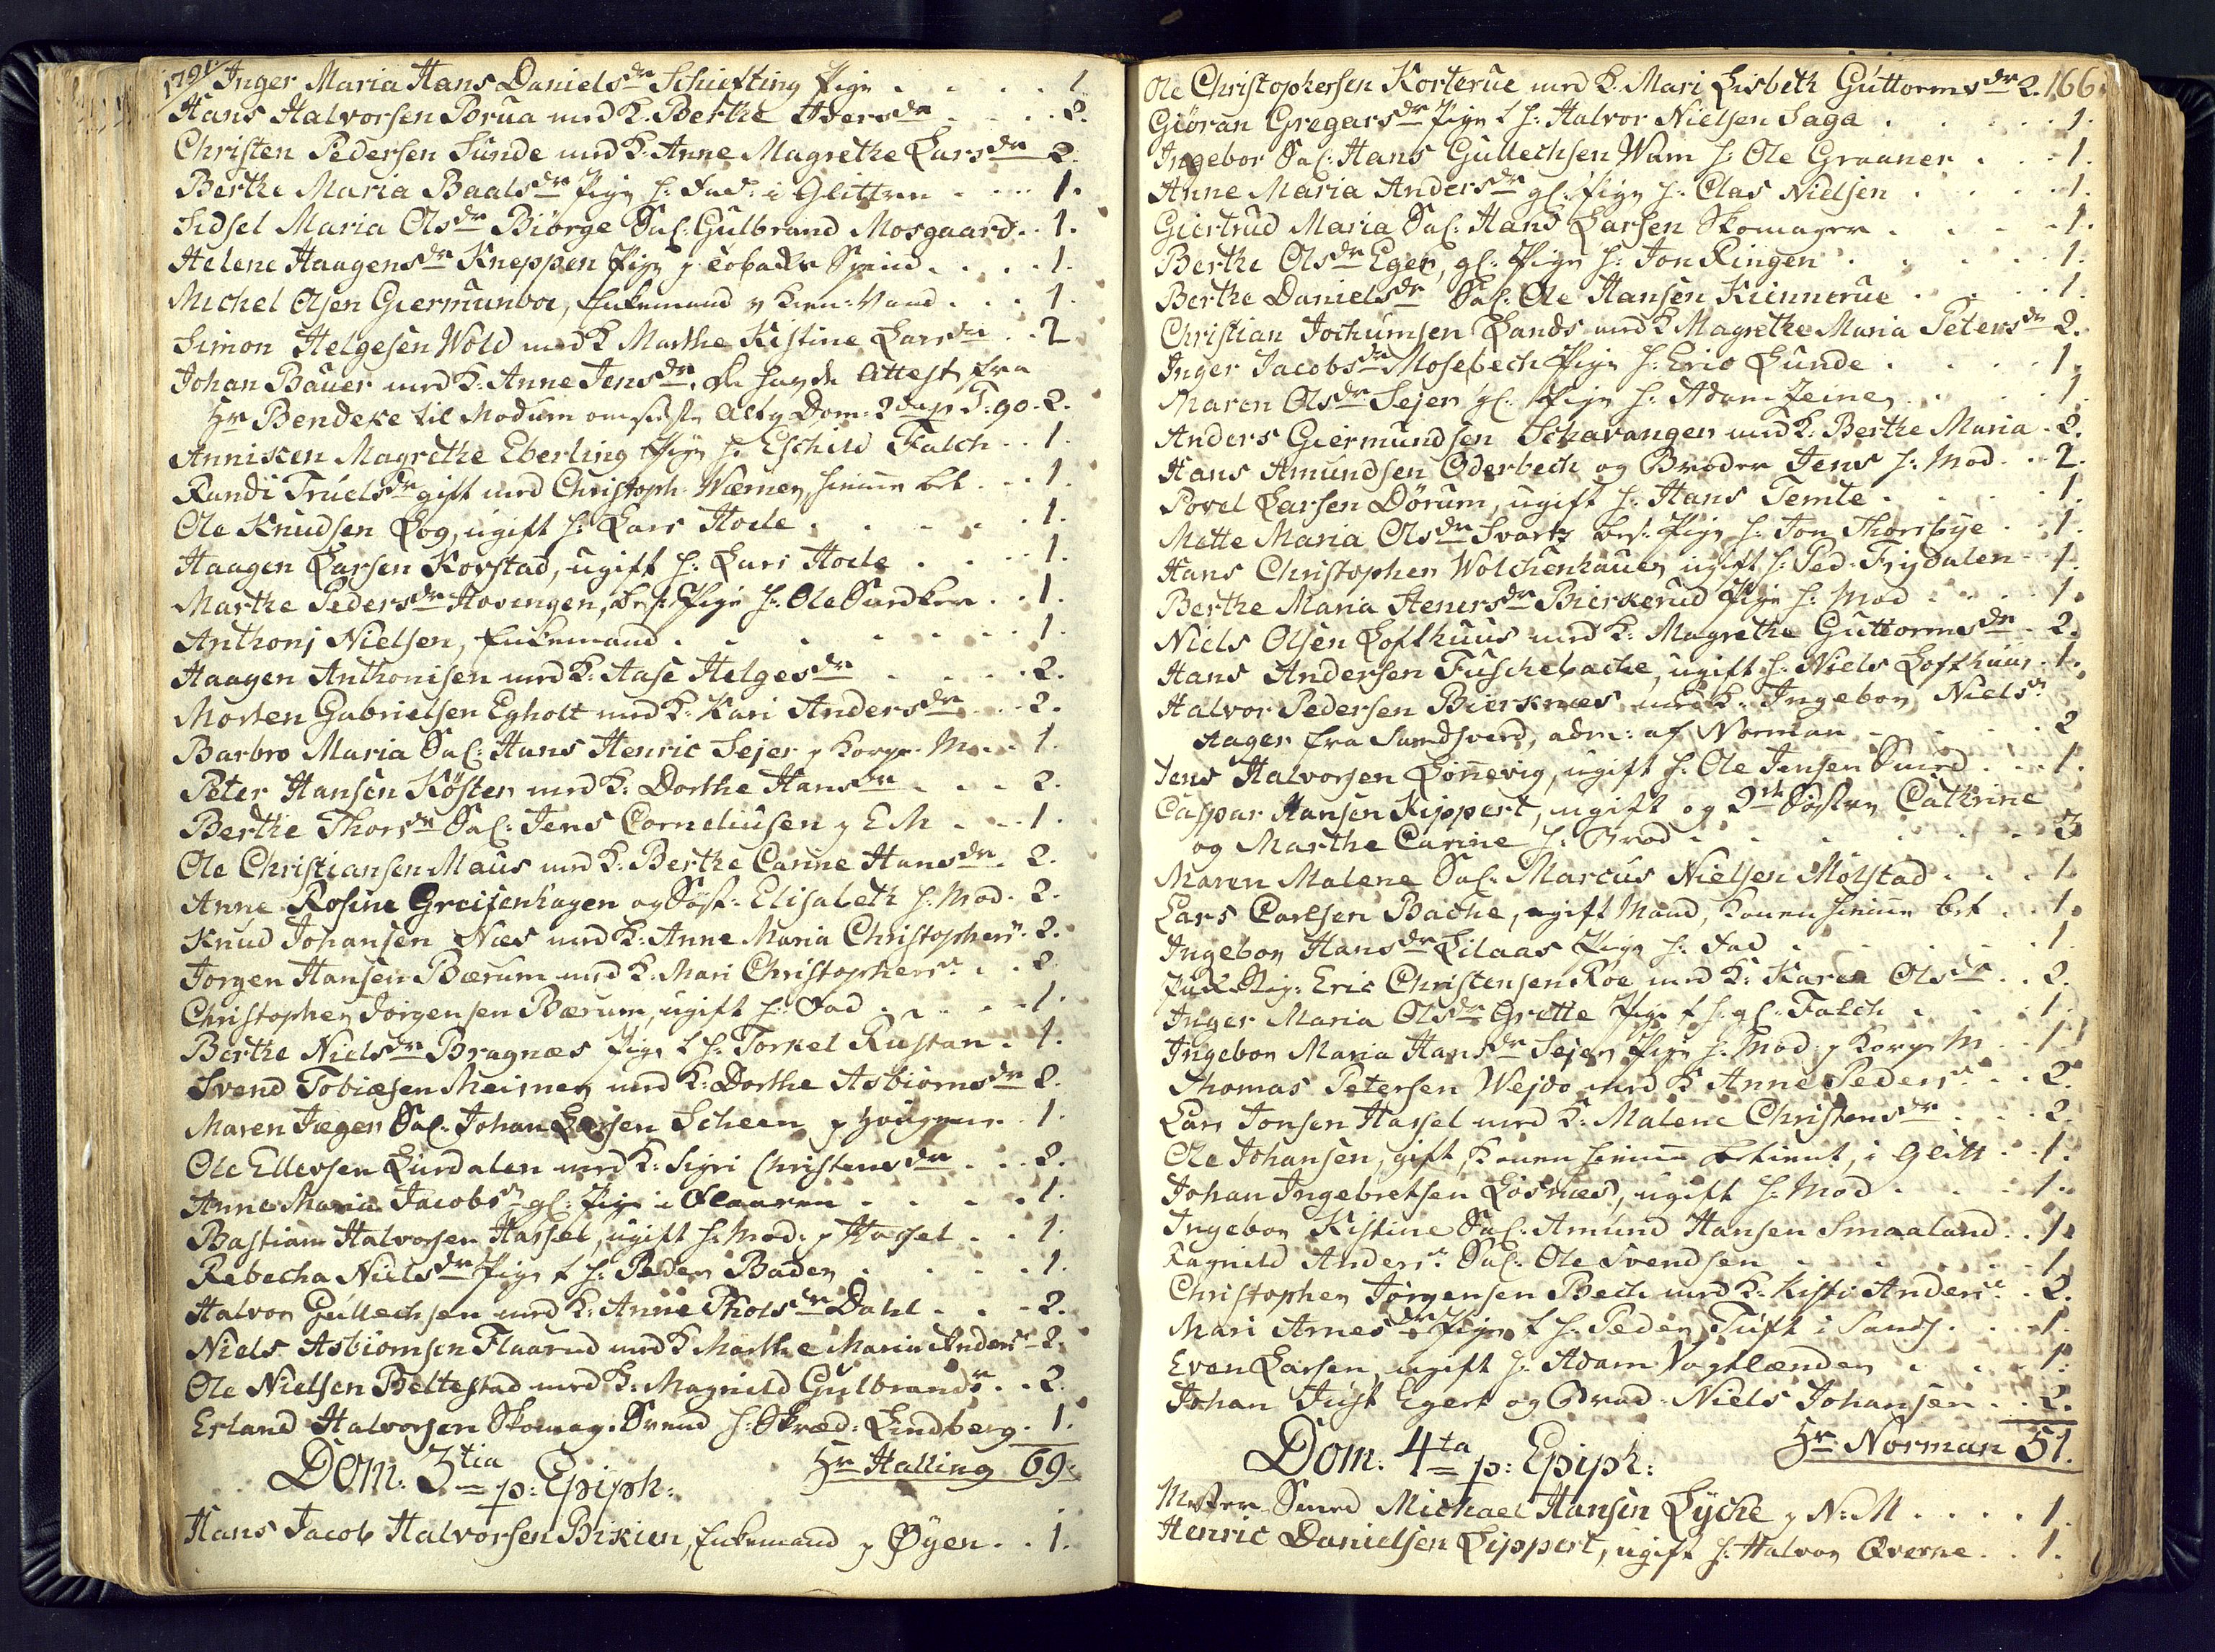 1791. Inger Maria Hans Danielsdr Schiefting Pige . . . . 1.
Hans Halvorsen Brua med K. Berthe Iversdr . . . 2.
Christen Pedersen Sunde med K. Anne Magrethe Larsdr 2.
Berthe Maria Baalsdr Pige h: Fad: i Glitten . . . . 1.
Sidsel Maria Olsdr Biørge Sal: Gulbrand Mosgaard . . 1.
Helene Haagensdr Kneppen Pige p Tobaks Spind . . . 1.
Michel Olsen Giermunboe, Enkemand . . . 1.
Simon Helgesen Wold med K Marthe Kistine Larsdr . . 2
Johan Bauer med K: Anne Jensdr. de havde Attest fra
Hr Bendeke til Modum om sidste Dom: 90. 2.
Anniken Magrethe Eberling Pige h: Eschild Falch . . 1.
Randi Truelsdr gift med Christoph: Wærner, hiemme bet . . 1.
Ole Knudsen Log, ugift h: Lars Hoele . . . . . 1.
Haagen Larsen Korstad, ugift h: Lars Hoele . . . 1.
Marthe Pedersdr Hovengen, Pige h: Ole . . 1.
Anthonj Nielsen, Enkemand . . . . . . . 1.
Haagen Anthonisen med K: Aase Helgesdr . . . . 2.
Morten Gabrielsen Egholt med K: Kari Andersdr . . 2.
Barbro Maria Sal: Hans Henric Sejer p Korpe M. . . 1.
Peter Hansen Köster med K: Dorthe Hansdr . . . 2.
Berthe Thorsdr Sal: Jens Corneliusen p E M . . . 1.
Ole Christiansen Maus med K: Berthe Carine Hansdr . 2.
Anne Rosine Greisenhagen og Søst: Elisabeth h: Mod . 2.
Knud Johansen Næs med K: Anne Maria Christophersdr . 2.
Jørgen Hansen Bærum med K: Mari Christophersdr . . 2
Christopher Jörgensen Bærum, ugift h: Fad . . . . 1.
Berthe Nielsdr Bragnæs Pige t h: Torkel Rustan . 1.
Svend Tobiæsen Meisner med K: Dorthe Asbiørnsdr 2.
Maren Jæger Sal: Johan Larsen Scheen p . 1.
Ole Ellevsen Lurdalen med K: Sigri Christensdr . . 2.
Anne Maria Jacobsdr gl: Pige i . . . . 1.
Bastian Halvorsen Hassel, ugift h: Mod: p Hassel . . 1.
Rebecha Nielsdr Pige t h: Peder Bader . . . . 1.
Halvor Gullechsen med K: Anne Tholsdr Dahl . . . 2.
Niels Asbiørnsen Flaarud med K Marthe Maria Andersdr 2.
Ole Nielsen Beltestad med K: Magnild Gulbrandsdr . . 2.
Erland Halvorsen Skomag: Svend h: Skræd: Lindberg . 1.
Hr Halling 69.
Dom: 3tia p: Epiph:
Hans Jacob Halvorsen Bikien, Enkemand p Øyen . . 1.
Ole Christophersen Korterue med K: Mari Lisbeth Guttormsdr 2. 166.
Giöran Gregarsdr Pige t h: Halvor Nielsen Saga . . . . 1.
Ingebor Sal: Hans Gullechsen Wam h: Ole Graaner . . . 1.
Anne Maria Andersdr gl: Pige h: Clas Nielsen . . . 1.
Giertrud Maria Sal: Hans Larsen Skomager . . . . 1.
Berthe Olsdr Eger, gl: Pige h: Jon Ringen . . . . 1.
Berthe Danielsdr Sal: Ole Hansen Kiennerue . . . . 1.
Christian Jochumsen Lands med K Magrethe Maria Petersdr 2.
Inger Jacobsdr Mosebech Pige h: Eric Lunde . . . . 1.
Maren Olsdr Sejer gl: Pige h: Adam Zeiner . . . . 1
Anders Giermundsen Schavanger med K: Berthe Maria . 2.
Hans Amundsen Oderbech og Broder Jens h: Mod . . 2.
Povel Larsen Dörum, ugift h: Hans Temte . . . . 1.
Mette Maria Olsdr Svartz Pige h: Jon Thorsbye . . 1.
Hans Christopher Wolckenhauer ugift h: Ped: Frydalen . 1.
Berthe Maria Steners dr Bierkerud Pige h: Mod . . . 1.
Niels Olsen Lofthuus med K: Magrethe Guttormsdr . 2.
Hans Andersen Fuschebache, ugift h: Niels Lofthuus . 1.
Halvor Pedersen Bierknæs med K: Ingebor Nielsdr
Aager fra Sandsverd, adm: af Norman . . . . 2
Jens Halvorsen Lönnevig, ugift h: Ole Jensen Smed . . 1.
Caspar Hansen Kippert, ugift og 2de Søstre Cathrine
og Marthe Carine h: Brod . . . . . . . 3
Maren Malene Sal: Marcus Nielsen Mölstad . . . 1
Lars Carlsen Bache, gift Mand, Konen hiemme bet . . 1.
Ingebor Hansdr Lilaas Pige h: Fad . . . . . . 1.
Eric Christensen Roe med K: Karen Olsdr . . 2.
Inger Maria Olsdr Grette Pige t h: gl: Falch . . . 1.
Ingebor Maria Hansdr Sejer Pige h: Mod: p Korpe M . . 1.
Thomas Petersen Wejdo med K Anne Pedersdr . . 2.
Lars Jonsen Hassel med K: Malene Christensdr . . . 2.
Ole Johansen, gift, Konen hiemme betient, i Glitt . . 1.
Johan Ingebretsen Løsnæs, ugift h: Mod . . . . 1.
Ingebor Kistine Sal: Amund Hansen Smaaland . . 1.
Ragnild Andersdr Sal: Ole Svendsen . . . . . 1.
Christopher Jörgensen Bech med K: Kisti Andersdr . 2.
Mari Arnesdr Pige t h: Peder Tuft i Sands . . . 1.
Even Larsen, ugift h: Adam Vogtlænder . . . . 1.
Johan Just Egert og Brod: Niels Johansen . . 2.
Hr Norman 51.
Dom: 4ta p: Epiph:
Mester Smed Michael Hansen Lyche p N: M . . . . 1.
Henric Danielsen Lippert, ugift h: Halvor Øverne . . 1.